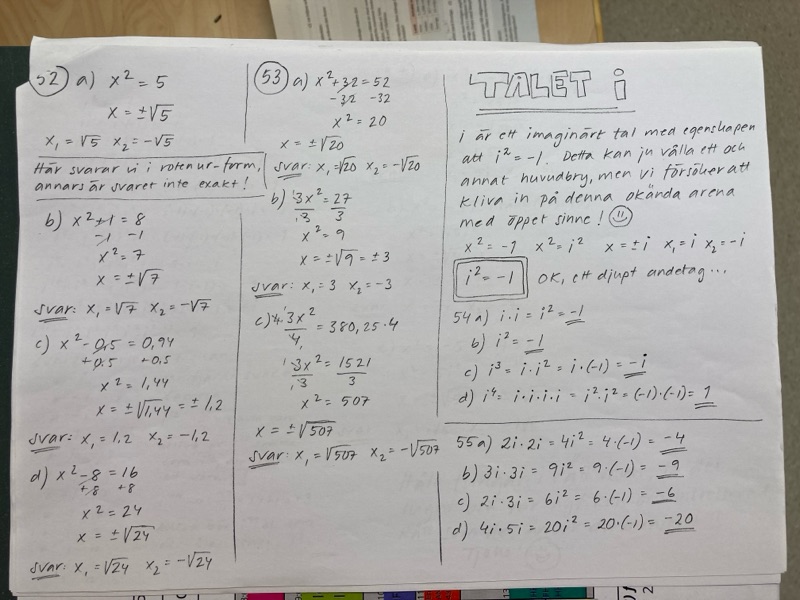 52) a) x² = 5
x = ±√5
x₁ = √5 x₂ = -√5
Här svarar vi i rotenur-form,
annars är svaret inte exakt!
b) x² + 1 = 8
-1 -1
x² = 7
x = ±√7
svar: x₁ = √7 x₂ = -√7
c) x² - 0,5 = 0,94
+0,5 +0,5
x² = 1,44
x = ±√1,44 = ± 1,2
svar: x₁ = 1,2 x₂ = -1,2
d) x² - 8 = 16
+8 +8
x² = 24
x = ±√24
svar: x₁ = √24 x₂ = -√24
53) a) x² + 32 = 52
-32 -32
x² = 20
x = ±√20
svar: x₁ = √20 x₂ = -√20
b) 3x² = 27
3 3
x² = 9
x = ±√9 = ±3
svar: x₁ = 3 x₂ = -3
c) 4· 3x² = 380,25·4
4
3x² = 1521
3 3
x² = 507
x = ±√507
svar: x₁ = √507 x₂ = -√507
TALET i
i är ett imaginärt tal med egenskapen
att i² = -1. Detta kan ju vålla ett och
annat huvudbry, men vi försöker att
kliva in på denna okända arena
med öppet sinne!
x² = -1 x² = i² x = ± i x₁ = i x₂ = -i
i² = -1 OK, ett djupt andetag...
54 a) i · i = i² = -1
b) i² = -1
c) i³ = i · i² = i · (-1) = -i
d) i⁴ = i · i · i · i = i² · i² = (-1) · (-1) = 1
55 a) 2i · 2i = 4i² = 4 · (-1) = -4
b) 3i · 3i = 9i² = 9 · (-1) = -9
c) 2i · 3i = 6i² = 6 · (-1) = -6
d) 4i · 5i = 20i² = 20 · (-1) = -20